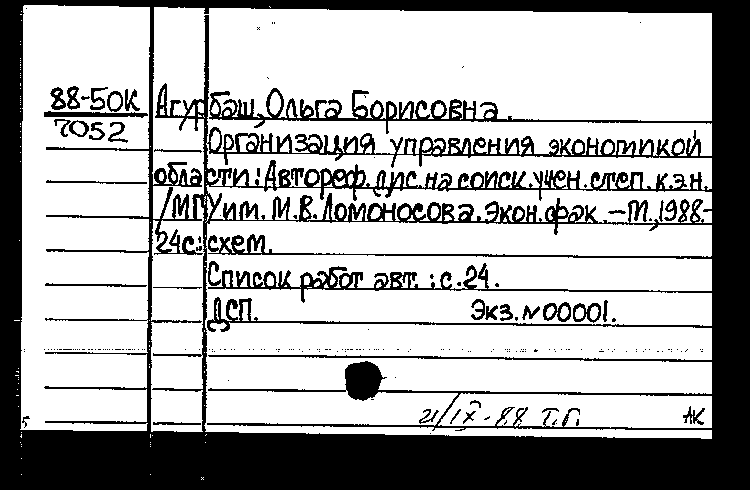 88-50К Агурбаш, Ольга Борисовна.
7052
Организация управления экономикой
области: Автореф. дис. на соиск. учен. степ. к.э.н.
/МГУ им. М.В. Ломоносова. Экон. фак. – М., 1988.-
24с.: схем.
Список работ авт.: с.24.
ДСП. Экз. №00001.
21/IX-88 Т.Г. АК